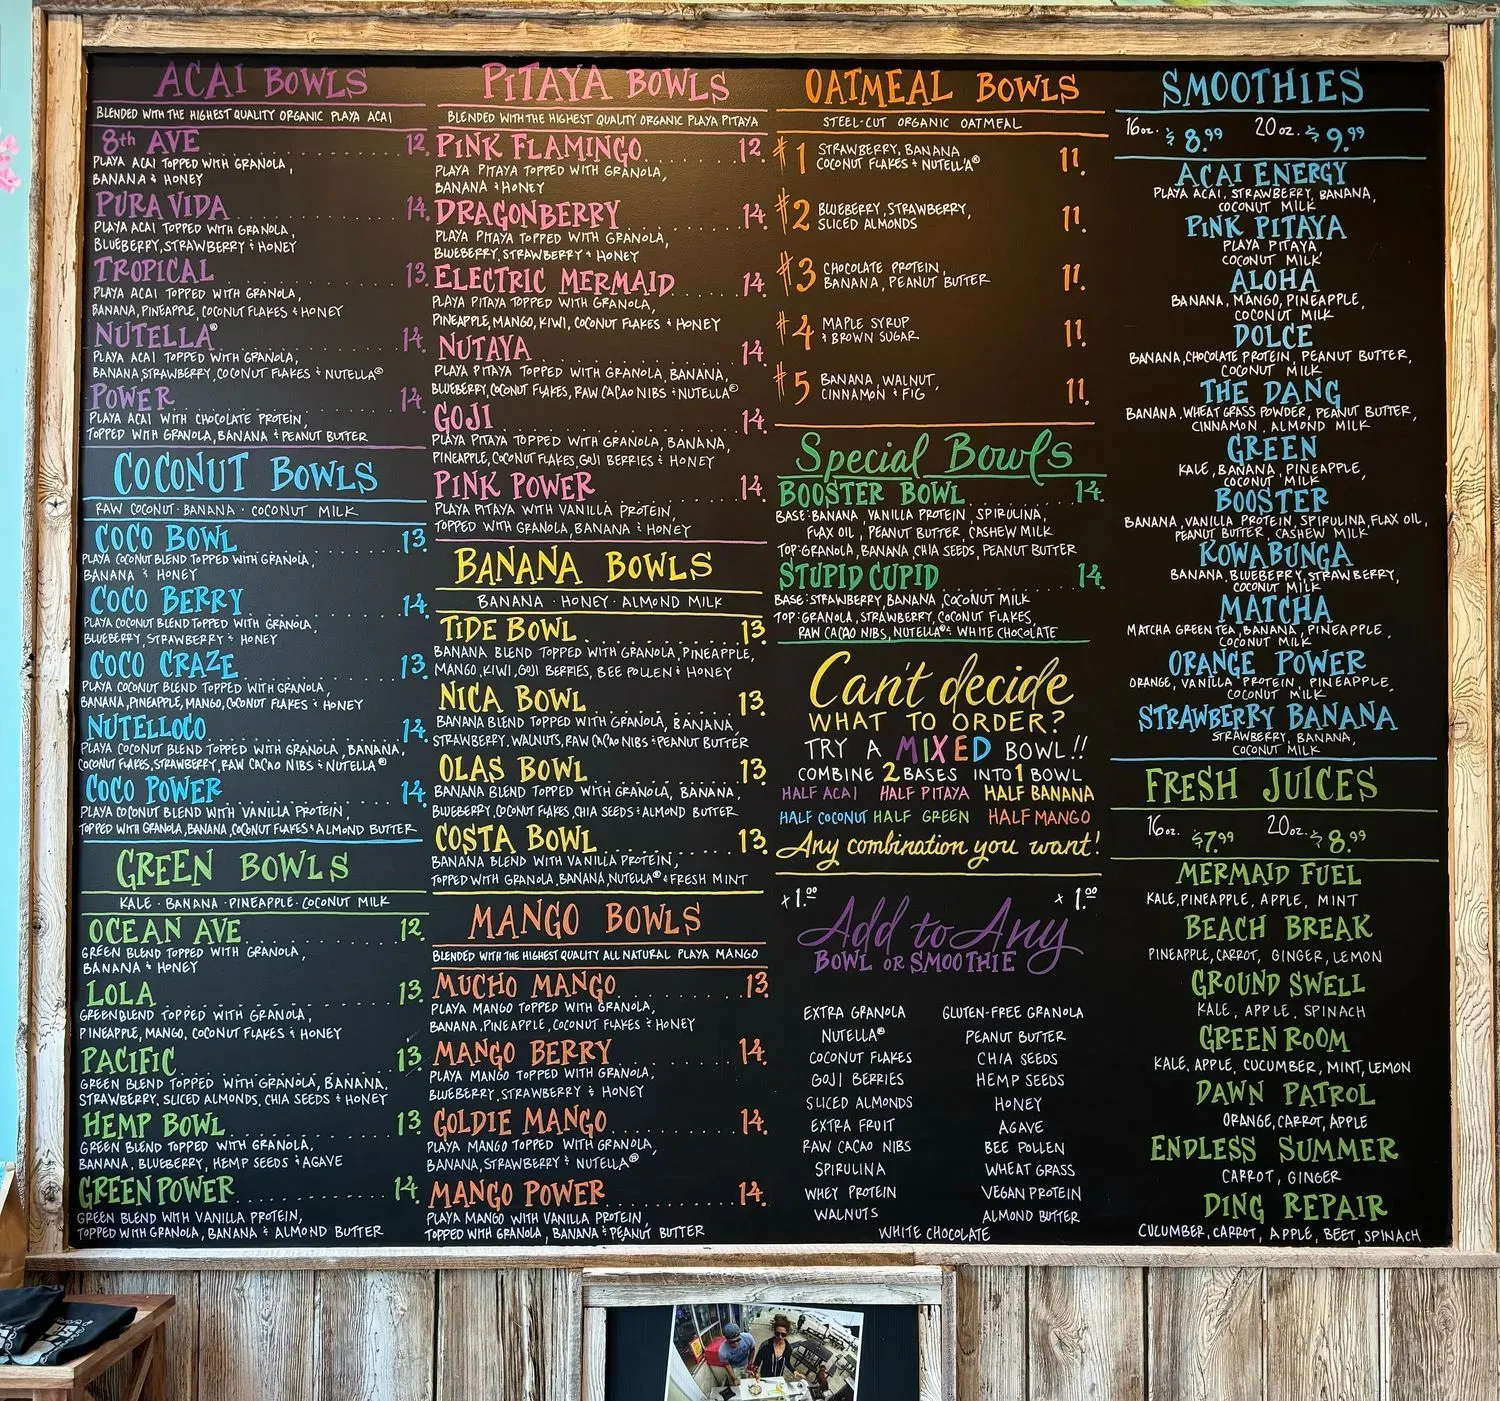 ACAI BOWLS
BLENDED WITH THE HIGHEST QUALITY ORGANIC PLAYA ACAI
8th AVE 12.
PLAYA ACAI TOPPED WITH GRANOLA,
BANANA & HONEY
PURA VIDA 14.
PLAYA ACAI TOPPED WITH GRANOLA,
BLUEBERRY, STRAWBERRY & HONEY
TROPICAL 13.
PLAYA ACAI TOPPED WITH GRANOLA,
BANANA, PINEAPPLE, COCONUT FLAKES & HONEY
NUTELLA® 14.
PLAYA ACAI TOPPED WITH GRANOLA,
BANANA, STRAWBERRY, COCONUT FLAKES & NUTELLA®
POWER 14.
PLAYA ACAI WITH CHOCOLATE PROTEIN,
TOPPED WITH GRANOLA, BANANA & PEANUT BUTTER
COCONUT BOWLS
RAW COCONUT · BANANA · COCONUT MILK
COCO BOWL 13.
PLAYA COCONUT BLEND TOPPED WITH GRANOLA,
BANANA & HONEY
COCO BERRY 14.
PLAYA COCONUT BLEND TOPPED WITH GRANOLA,
BLUEBERRY, STRAWBERRY & HONEY
COCO CRAZE 13.
PLAYA COCONUT BLEND TOPPED WITH GRANOLA,
BANANA, PINEAPPLE, MANGO, COCONUT FLAKES & HONEY
NUTELLOCO 14.
PLAYA COCONUT BLEND TOPPED WITH GRANOLA, BANANA,
COCONUT FLAKES, STRAWBERRY, RAW CACAO NIBS & NUTELLA®
COCO POWER 14.
PLAYA COCONUT BLEND WITH VANILLA PROTEIN,
TOPPED WITH GRANOLA, BANANA, COCONUT FLAKES & ALMOND BUTTER
GREEN BOWLS
KALE · BANANA · PINEAPPLE · COCONUT MILK
OCEAN AVE 12.
GREEN BLEND TOPPED WITH GRANOLA,
BANANA & HONEY
LOLA 13.
GREEN BLEND TOPPED WITH GRANOLA,
PINEAPPLE, MANGO, COCONUT FLAKES & HONEY
PACIFIC 13.
GREEN BLEND TOPPED WITH GRANOLA, BANANA,
STRAWBERRY, SLICED ALMONDS, CHIA SEEDS & HONEY
HEMP BOWL 13.
GREEN BLEND TOPPED WITH GRANOLA,
BANANA, BLUEBERRY, HEMP SEEDS & AGAVE
GREEN POWER 14.
GREEN BLEND WITH VANILLA PROTEIN,
TOPPED WITH GRANOLA, BANANA & ALMOND BUTTER
PITAYA BOWLS
BLENDED WITH THE HIGHEST QUALITY ORGANIC PLAYA PITAYA
PINK FLAMINGO 12.
PLAYA PITAYA TOPPED WITH GRANOLA,
BANANA & HONEY
DRAGONBERRY 14.
PLAYA PITAYA TOPPED WITH GRANOLA,
BLUEBERRY, STRAWBERRY & HONEY
ELECTRIC MERMAID 14.
PLAYA PITAYA TOPPED WITH GRANOLA,
PINEAPPLE, MANGO, KIWI, COCONUT FLAKES & HONEY
NUTAYA 14.
PLAYA PITAYA TOPPED WITH GRANOLA, BANANA,
BLUEBERRY, COCONUT FLAKES, RAW CACAO NIBS & NUTELLA®
GOJI 14.
PLAYA PITAYA TOPPED WITH GRANOLA, BANANA,
PINEAPPLE, COCONUT FLAKES, GOJI BERRIES & HONEY
PINK POWER 14.
PLAYA PITAYA WITH VANILLA PROTEIN,
TOPPED WITH GRANOLA, BANANA & HONEY
BANANA BOWLS
BANANA · HONEY · ALMOND MILK
TIDE BOWL 13.
BANANA BLEND TOPPED WITH GRANOLA, PINEAPPLE,
MANGO, KIWI, GOJI BERRIES, BEE POLLEN & HONEY
NICA BOWL 13.
BANANA BLEND TOPPED WITH GRANOLA, BANANA,
STRAWBERRY, WALNUTS, RAW CACAO NIBS & PEANUT BUTTER
OLAS BOWL 13.
BANANA BLEND TOPPED WITH GRANOLA, BANANA,
BLUEBERRY, COCONUT FLAKES, CHIA SEEDS & ALMOND BUTTER
COSTA BOWL 13.
BANANA BLEND WITH VANILLA PROTEIN,
TOPPED WITH GRANOLA, BANANA, NUTELLA® & FRESH MINT
MANGO BOWLS
BLENDED WITH THE HIGHEST QUALITY ALL NATURAL PLAYA MANGO
MUCHO MANGO 13.
PLAYA MANGO TOPPED WITH GRANOLA,
BANANA, PINEAPPLE, COCONUT FLAKES & HONEY
MANGO BERRY 14.
PLAYA MANGO TOPPED WITH GRANOLA,
BLUEBERRY, STRAWBERRY & HONEY
GOLDIE MANGO 14.
PLAYA MANGO TOPPED WITH GRANOLA,
BANANA, STRAWBERRY & NUTELLA®
MANGO POWER 14.
PLAYA MANGO WITH VANILLA PROTEIN,
TOPPED WITH GRANOLA, BANANA & PEANUT BUTTER
OATMEAL BOWLS
STEEL-CUT ORGANIC OATMEAL
#1 STRAWBERRY, BANANA 11.
COCONUT FLAKES & NUTELLA®
#2 BLUEBERRY, STRAWBERRY, 11.
SLICED ALMONDS
#3 CHOCOLATE PROTEIN, 11.
BANANA, PEANUT BUTTER
#4 MAPLE SYRUP 11.
& BROWN SUGAR
#5 BANANA, WALNUT, 11.
CINNAMON & FIG
Special Bowls
BOOSTER BOWL 14.
BASE: BANANA, VANILLA PROTEIN, SPIRULINA,
FLAX OIL, PEANUT BUTTER, CASHEW MILK
TOP: GRANOLA, BANANA, CHIA SEEDS, PEANUT BUTTER
STUPID CUPID 14.
BASE: STRAWBERRY, BANANA, COCONUT MILK
TOP: GRANOLA, STRAWBERRY, COCONUT FLAKES,
RAW CACAO NIBS, NUTELLA® & WHITE CHOCOLATE
Can't decide
WHAT TO ORDER?
TRY A MIXED BOWL!!
COMBINE 2 BASES INTO 1 BOWL
HALF ACAI HALF PITAYA HALF BANANA
HALF COCONUT HALF GREEN HALF MANGO
Any combination you want!
+1.00 +1.00
Add to Any
BOWL OR SMOOTHIE
EXTRA GRANOLA GLUTEN-FREE GRANOLA
NUTELLA® PEANUT BUTTER
COCONUT FLAKES CHIA SEEDS
GOJI BERRIES HEMP SEEDS
SLICED ALMONDS HONEY
EXTRA FRUIT AGAVE
RAW CACAO NIBS BEE POLLEN
SPIRULINA WHEAT GRASS
WHEY PROTEIN VEGAN PROTEIN
WALNUTS ALMOND BUTTER
WHITE CHOCOLATE
SMOOTHIES
16oz. $8.99 20oz. $9.99
ACAI ENERGY
PLAYA ACAI, STRAWBERRY, BANANA,
COCONUT MILK
PINK PITAYA
PLAYA PITAYA
COCONUT MILK
ALOHA
BANANA, MANGO, PINEAPPLE,
COCONUT MILK
DOLCE
BANANA, CHOCOLATE PROTEIN, PEANUT BUTTER,
COCONUT MILK
THE DANG
BANANA, WHEAT GRASS POWDER, PEANUT BUTTER,
CINNAMON, ALMOND MILK
GREEN
KALE, BANANA, PINEAPPLE,
COCONUT MILK
BOOSTER
BANANA, VANILLA PROTEIN, SPIRULINA, FLAX OIL,
PEANUT BUTTER, CASHEW MILK
KOWABUNGA
BANANA, BLUEBERRY, STRAWBERRY,
COCONUT MILK
MATCHA
MATCHA GREEN TEA, BANANA, PINEAPPLE,
COCONUT MILK
ORANGE POWER
ORANGE, VANILLA PROTEIN, PINEAPPLE,
COCONUT MILK
STRAWBERRY BANANA
STRAWBERRY, BANANA,
COCONUT MILK
FRESH JUICES
16oz. $7.99 20oz. $8.99
MERMAID FUEL
KALE, PINEAPPLE, APPLE, MINT
BEACH BREAK
PINEAPPLE, CARROT, GINGER, LEMON
GROUND SWELL
KALE, APPLE, SPINACH
GREEN ROOM
KALE, APPLE, CUCUMBER, MINT, LEMON
DAWN PATROL
ORANGE, CARROT, APPLE
ENDLESS SUMMER
CARROT, GINGER
DING REPAIR
CUCUMBER, CARROT, APPLE, BEET, SPINACH